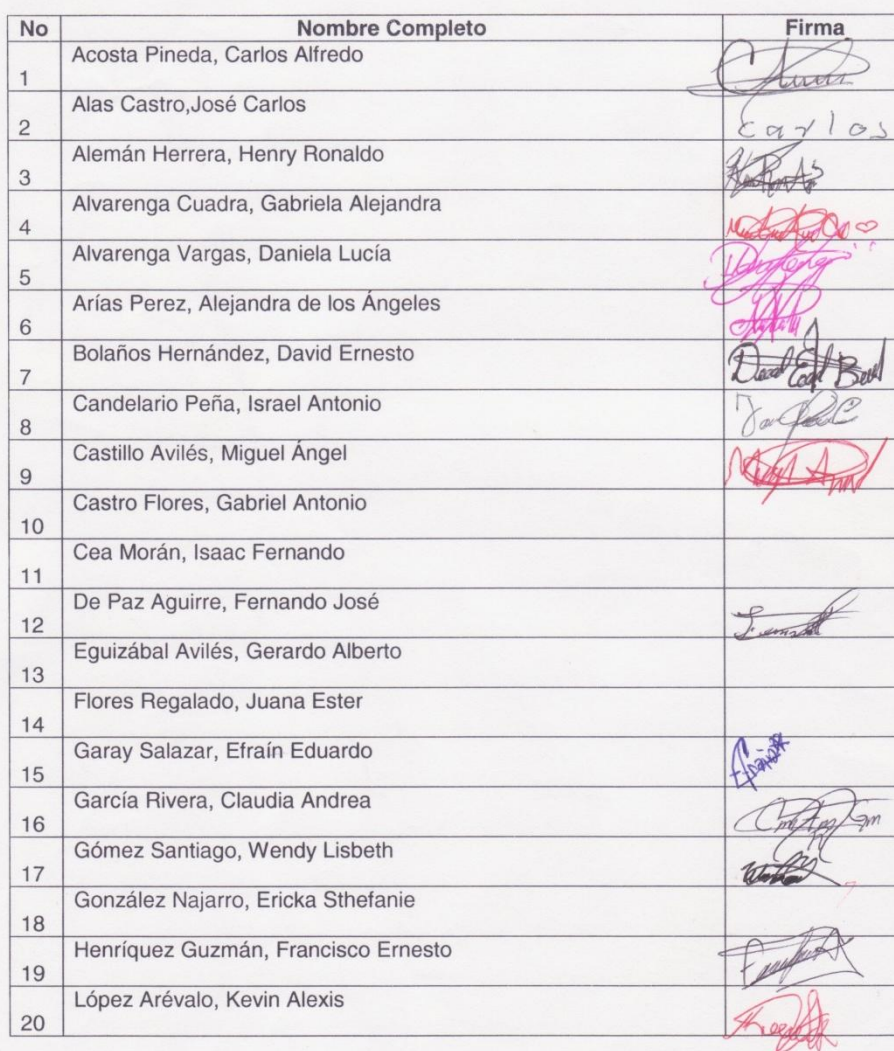 No Nombre Completo Firma
1 Acosta Pineda, Carlos Alfredo
2 Alas Castro,José Carlos carlos
3 Alemán Herrera, Henry Ronaldo
4 Alvarenga Cuadra, Gabriela Alejandra
5 Alvarenga Vargas, Daniela Lucía
6 Arías Perez, Alejandra de los Ángeles
7 Bolaños Hernández, David Ernesto
8 Candelario Peña, Israel Antonio
9 Castillo Avilés, Miguel Ángel
10 Castro Flores, Gabriel Antonio
11 Cea Morán, Isaac Fernando
12 De Paz Aguirre, Fernando José
13 Eguizábal Avilés, Gerardo Alberto
14 Flores Regalado, Juana Ester
15 Garay Salazar, Efraín Eduardo
16 García Rivera, Claudia Andrea
17 Gómez Santiago, Wendy Lisbeth
18 González Najarro, Ericka Sthefanie
19 Henríquez Guzmán, Francisco Ernesto
20 López Arévalo, Kevin Alexis